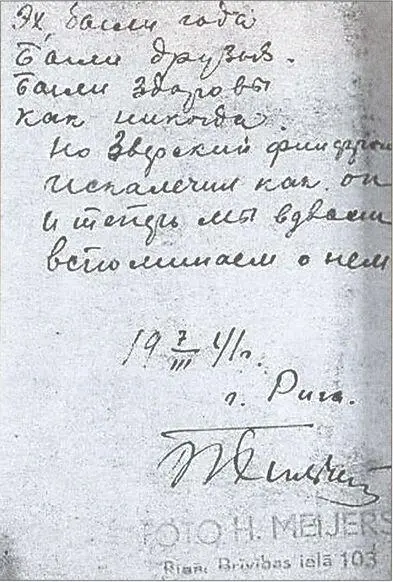 Эх были года
Были друзья.
Были здоровы
как никогда.
Но Зверский финфронт
Искалечил как он
И теперь мы вдвоем
вспоминаем о нем
19 7/III 41г.
г. Рига.
FOTO H. MEIJERS
Rīgā, Brīvības ielā 103